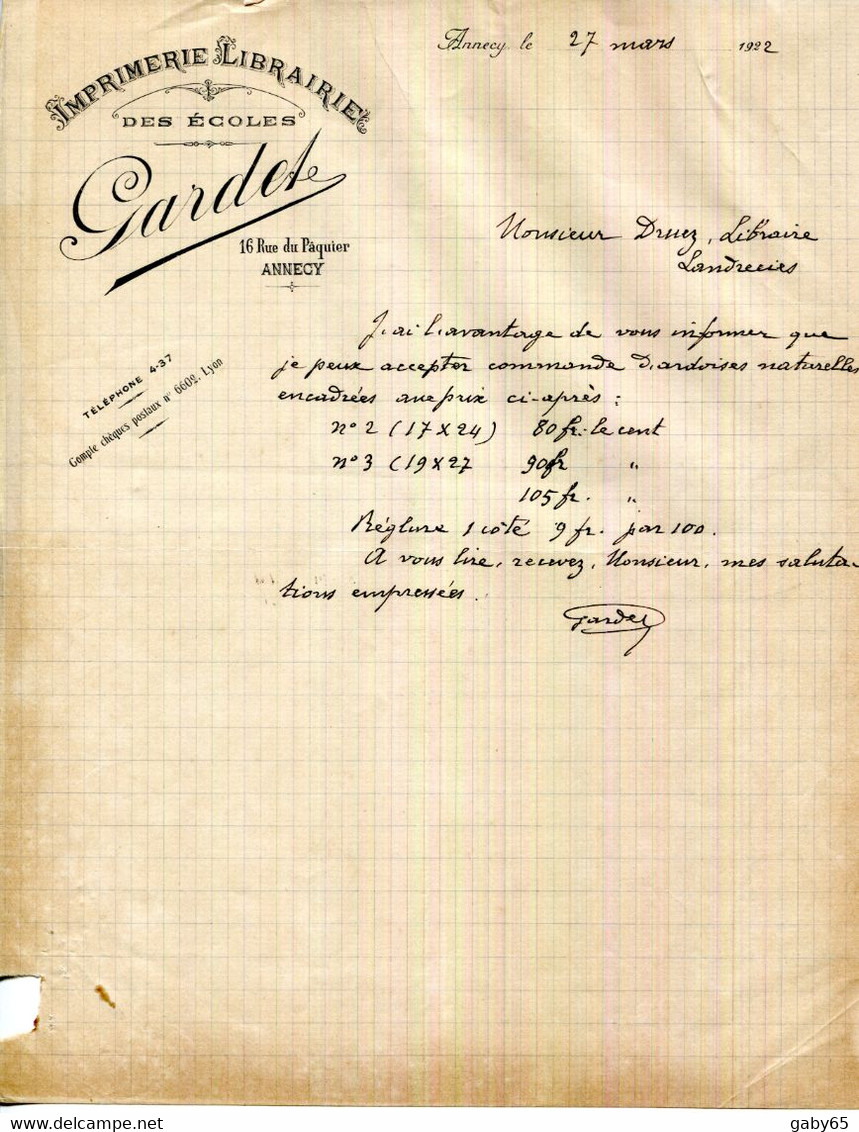 IMPRIMERIE LIBRAIRIE
DES ÉCOLES
Gardet
16 Rue du Pâquier
ANNECY
TÉLÉPHONE 4-37
Compte chèques postaux nº 6602. Lyon
Annecy, le 27 mars 1922
Monsieur Druez, Libraire
Landrecies
J'ai l'avantage de vous informer que
je peux accepter commande d'ardoises naturelles
encadrées aux prix ci-après :
nº 2 (17 x 24) 80 fr. le cent
nº 3 (19 x 27 90 fr "
105 fr. "
Réglure 1 côté 9 fr. par 100.
A vous lire, recevez, Monsieur, mes saluta-
tions empressées.
Gardet
delcampe.net
gaby65